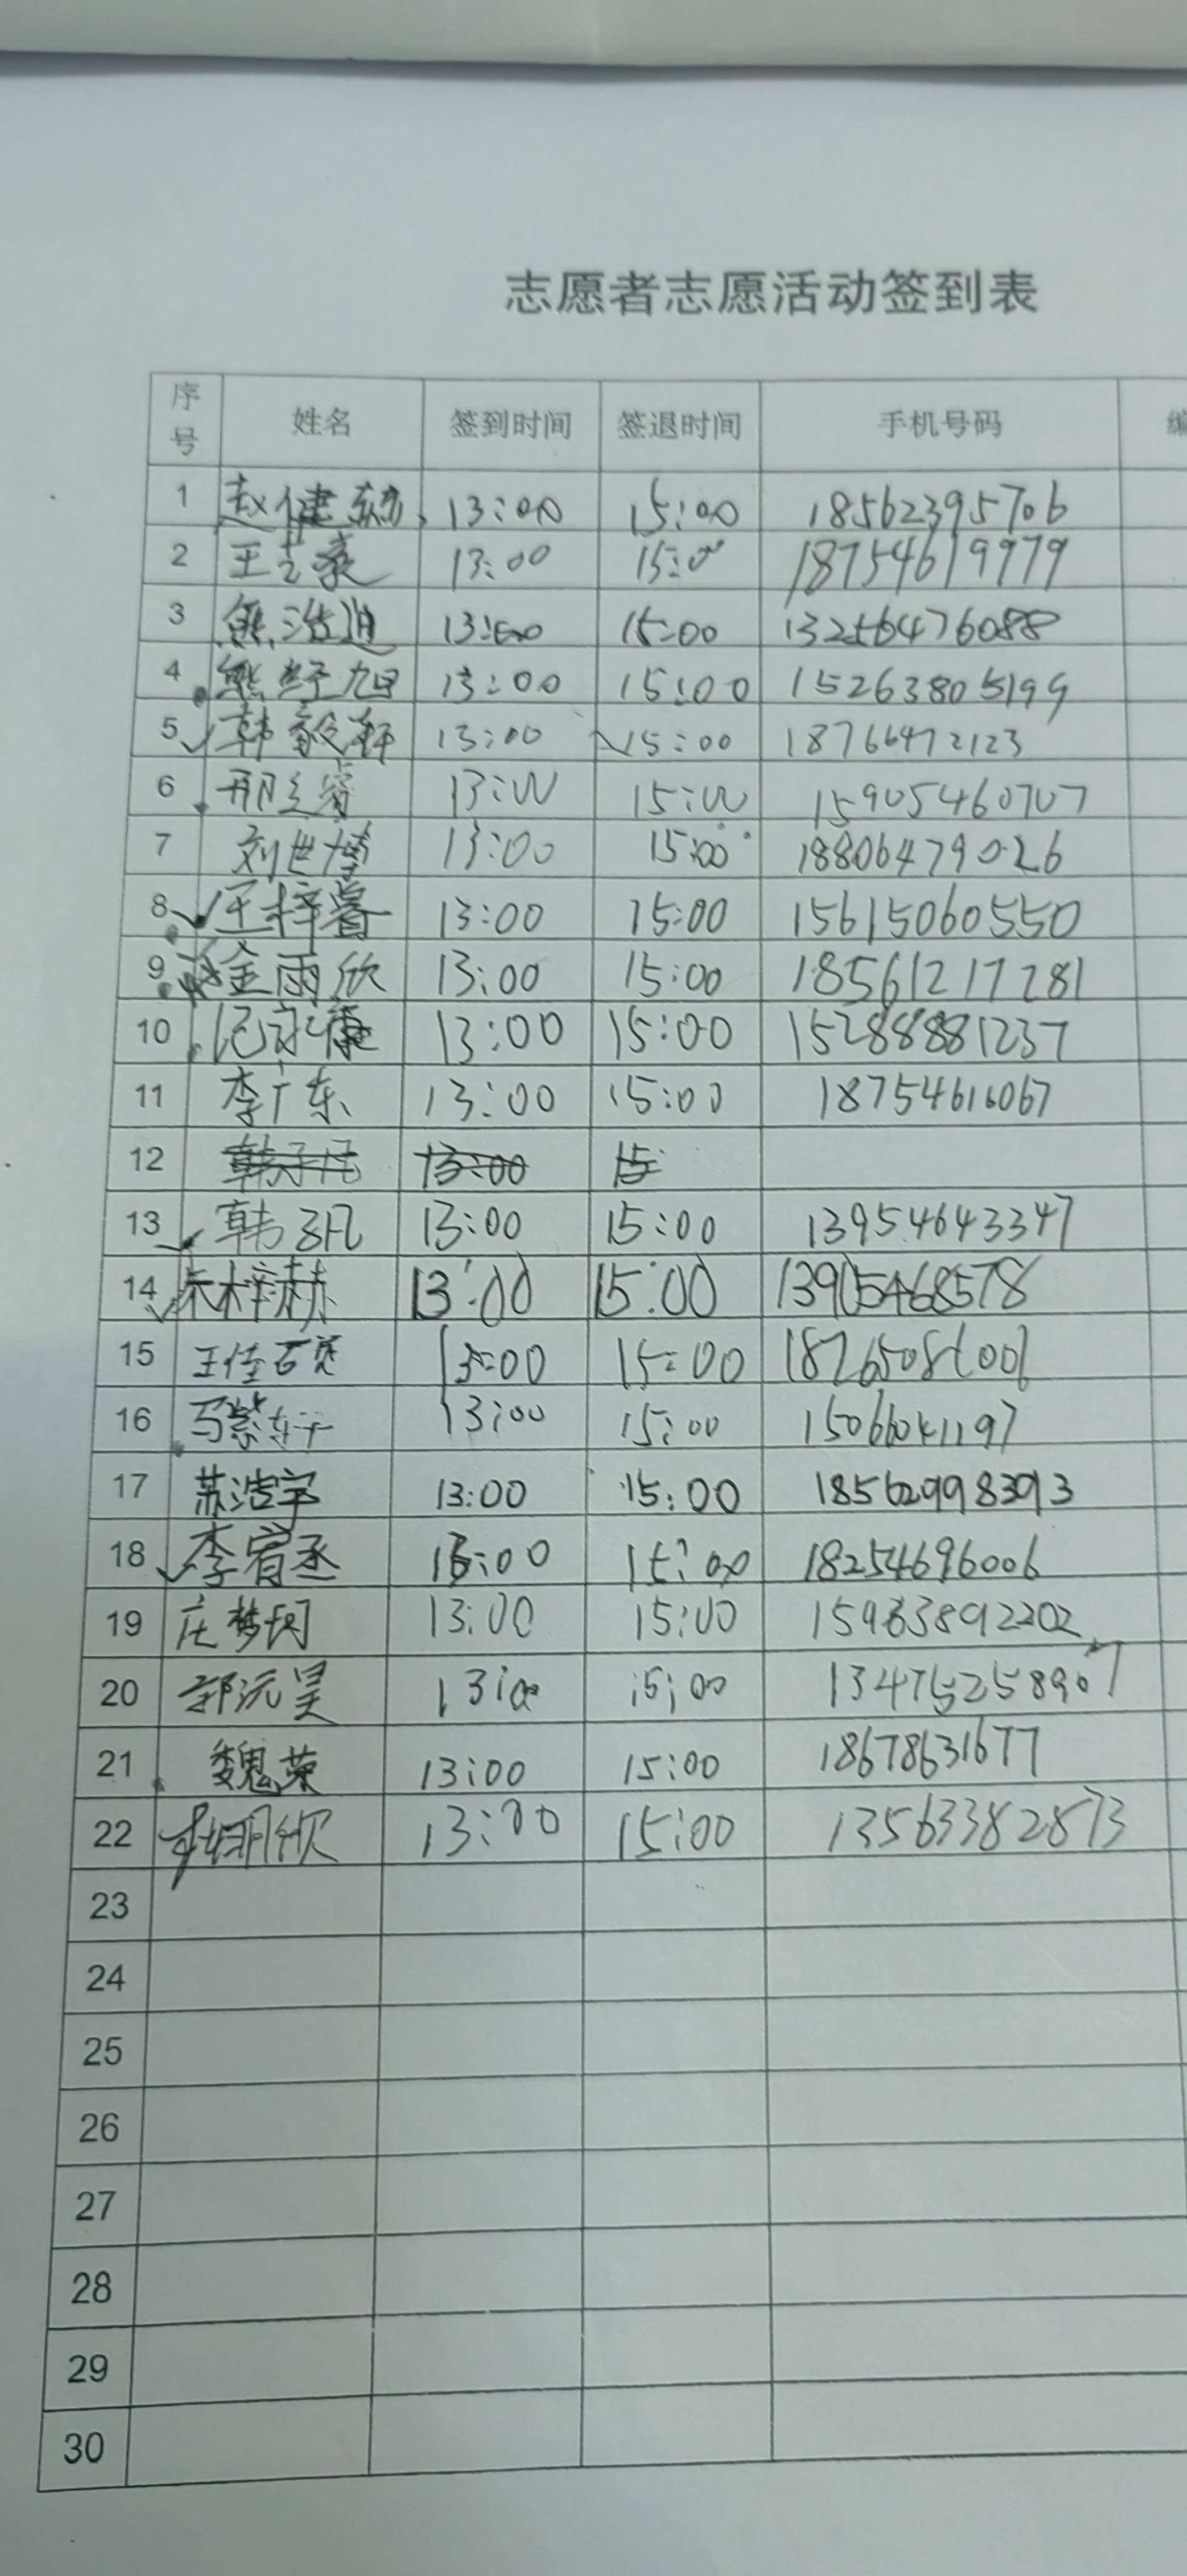 志愿者志愿活动签到表
序号 姓名 签到时间 签退时间 手机号码 编
1 赵健 13:00 15:00 18562395706
2 王艺豪 13:00 15:00 18754619979
3 熊浩迪 13:00 15:00 13256476088
4 熊梓旭 13:00 15:00 15263805199
5 韩毅轩 13:00 15:00 18766472123
6 邢奕睿 13:00 15:00 15905460707
7 刘世博 13:00 15:00 18806479026
8 王梓睿 13:00 15:00 15615060550
9 金雨欣 13:00 15:00 18561217281
10 13:00 15:00 15288881237
11 李广东 13:00 15:00 18754616067
12 韩子凡 13:00 15:
13 韩子凡 13:00 15:00 13954643347
14 朱梓赫 13:00 15:00 13905468578
15 王佳 13:00 15:00
16 马紫轩 13:00 15:00 15066041197
17 苏浩宇 13:00 15:00 18562998393
18 李宥丞 13:00 15:00 18254696006
19 庄梦珂 13:00 15:00 15963892202
20 郭沅昊 13:00 15:00 13475258907
21 魏荣 13:00 15:00 18678631677
22 13:00 15:00 13563382873
23
24
25
26
27
28
29
30